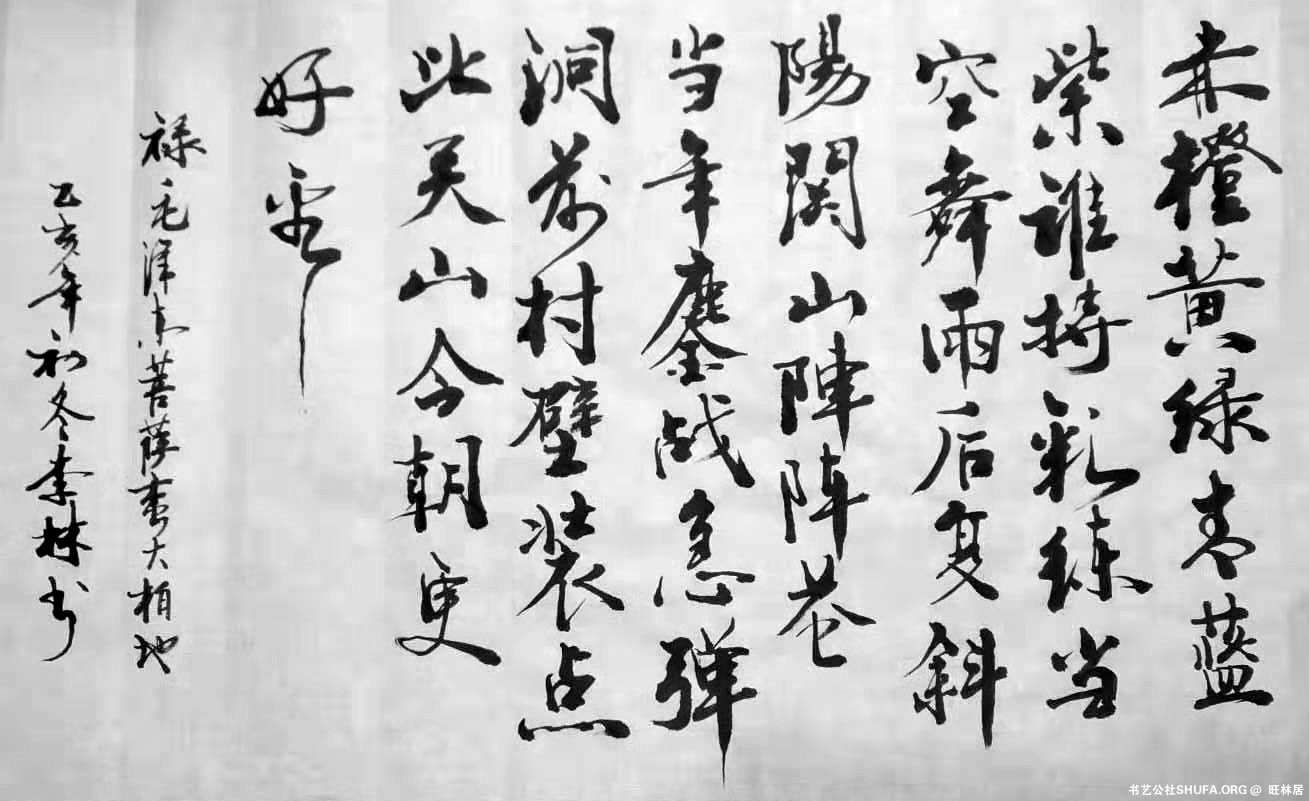 赤橙黄绿青蓝
紫谁持彩练当
空舞雨后复斜
陽関山陣阵苍
当年鏖战急弹
洞前村壁装点
此关山今朝更
好看
禄毛泽东菩萨蛮大柏地
己亥年初冬李林书
书艺公社SHUFA.ORG @ 旺林居